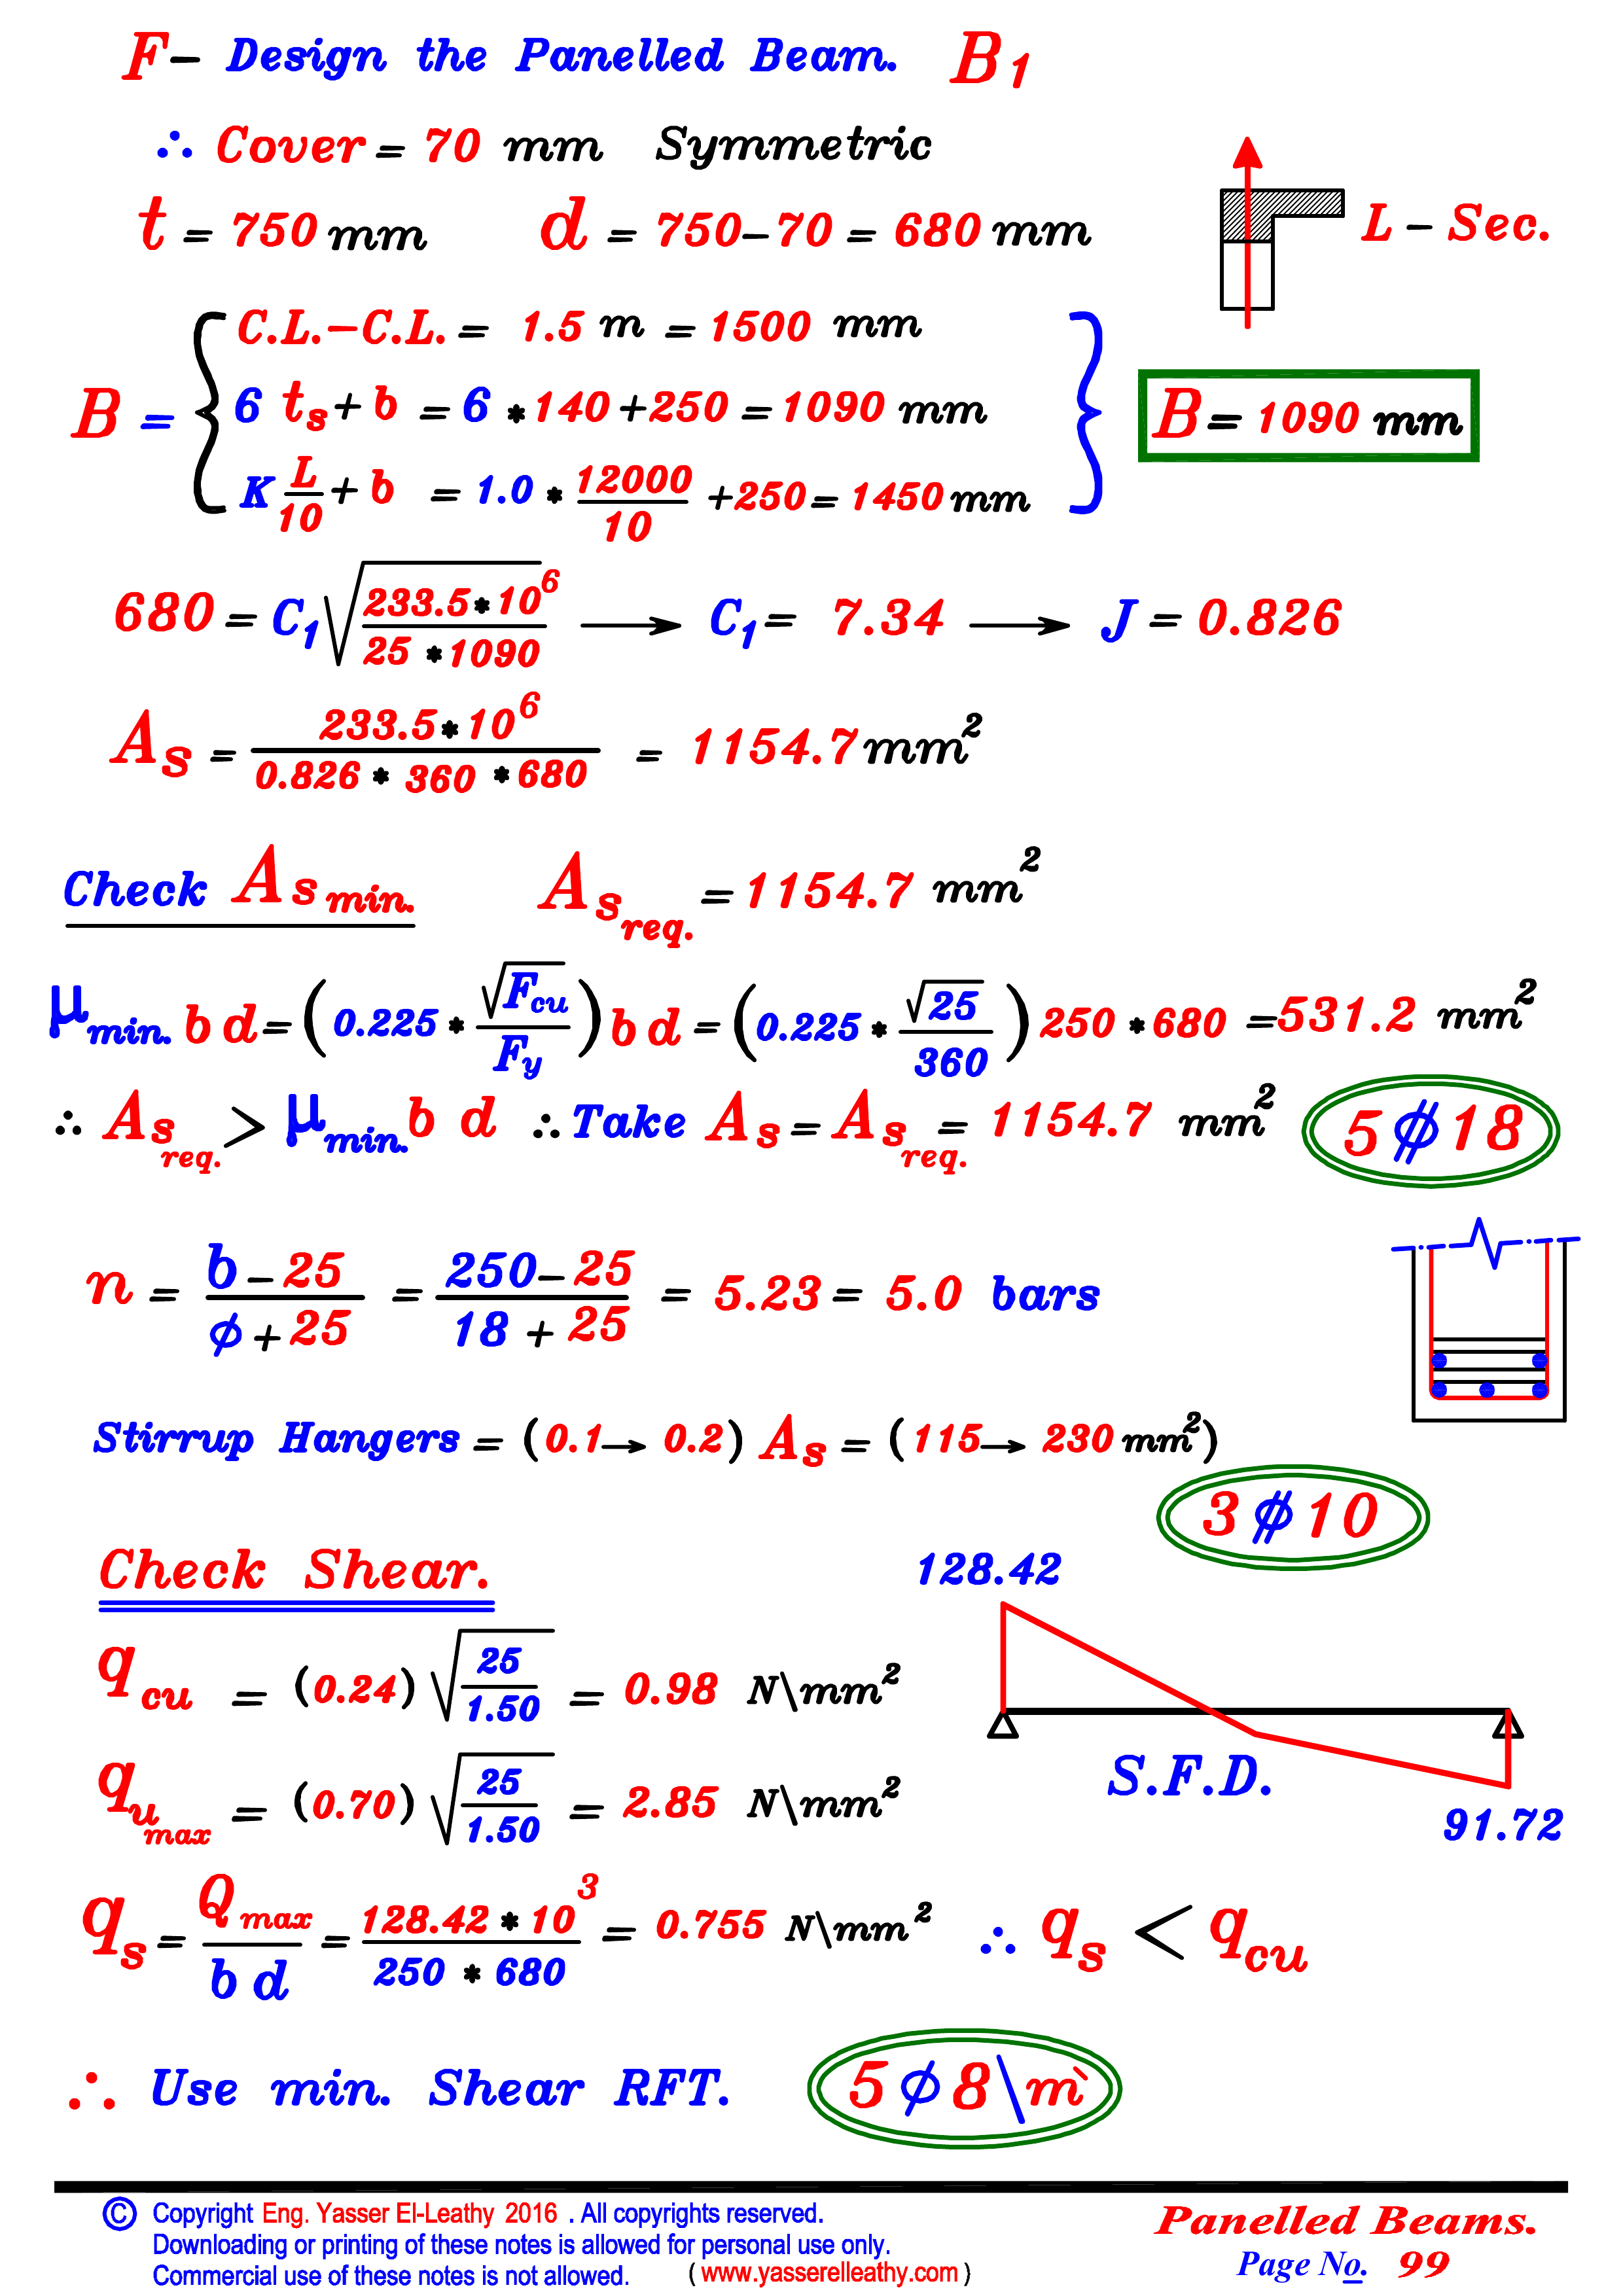 F- Design the Panelled Beam. B1
∴ Cover = 70 mm Symmetric
t = 750 mm d = 750-70 = 680 mm
L - Sec.
C.L.-C.L. = 1.5 m = 1500 mm
B = { 6 ts + b = 6 * 140 + 250 = 1090 mm } B = 1090 mm
K L/10 + b = 1.0 * 12000/10 + 250 = 1450 mm
680 = C1 √(233.5*10^6 / 25*1090) → C1 = 7.34 → J = 0.826
As = 233.5*10^6 / 0.826 * 360 * 680 = 1154.7 mm²
Check As min. As req. = 1154.7 mm²
μ min. b d = (0.225 * √Fcu / Fy) b d = (0.225 * √25 / 360) 250 * 680 = 531.2 mm²
∴ As req. > μ min. b d ∴ Take As = As req. = 1154.7 mm² 5 ⌀ 18
n = b - 25 / ϕ + 25 = 250 - 25 / 18 + 25 = 5.23 = 5.0 bars
Stirrup Hangers = (0.1 → 0.2) As = (115 → 230 mm²)
3 ⌀ 10
Check Shear.
128.42
q cu = (0.24) √(25 / 1.50) = 0.98 N\mm²
S.F.D.
q u max = (0.70) √(25 / 1.50) = 2.85 N\mm²
91.72
qs = Q max / b d = 128.42 * 10^3 / 250 * 680 = 0.755 N\mm² ∴ qs < qcu
∴ Use min. Shear RFT. 5 ϕ 8 \ m`
© Copyright Eng. Yasser El-Leathy 2016 . All copyrights reserved.
Downloading or printing of these notes is allowed for personal use only.
Commercial use of these notes is not allowed. ( www.yasserelleathy.com )
Panelled Beams.
Page No. 99